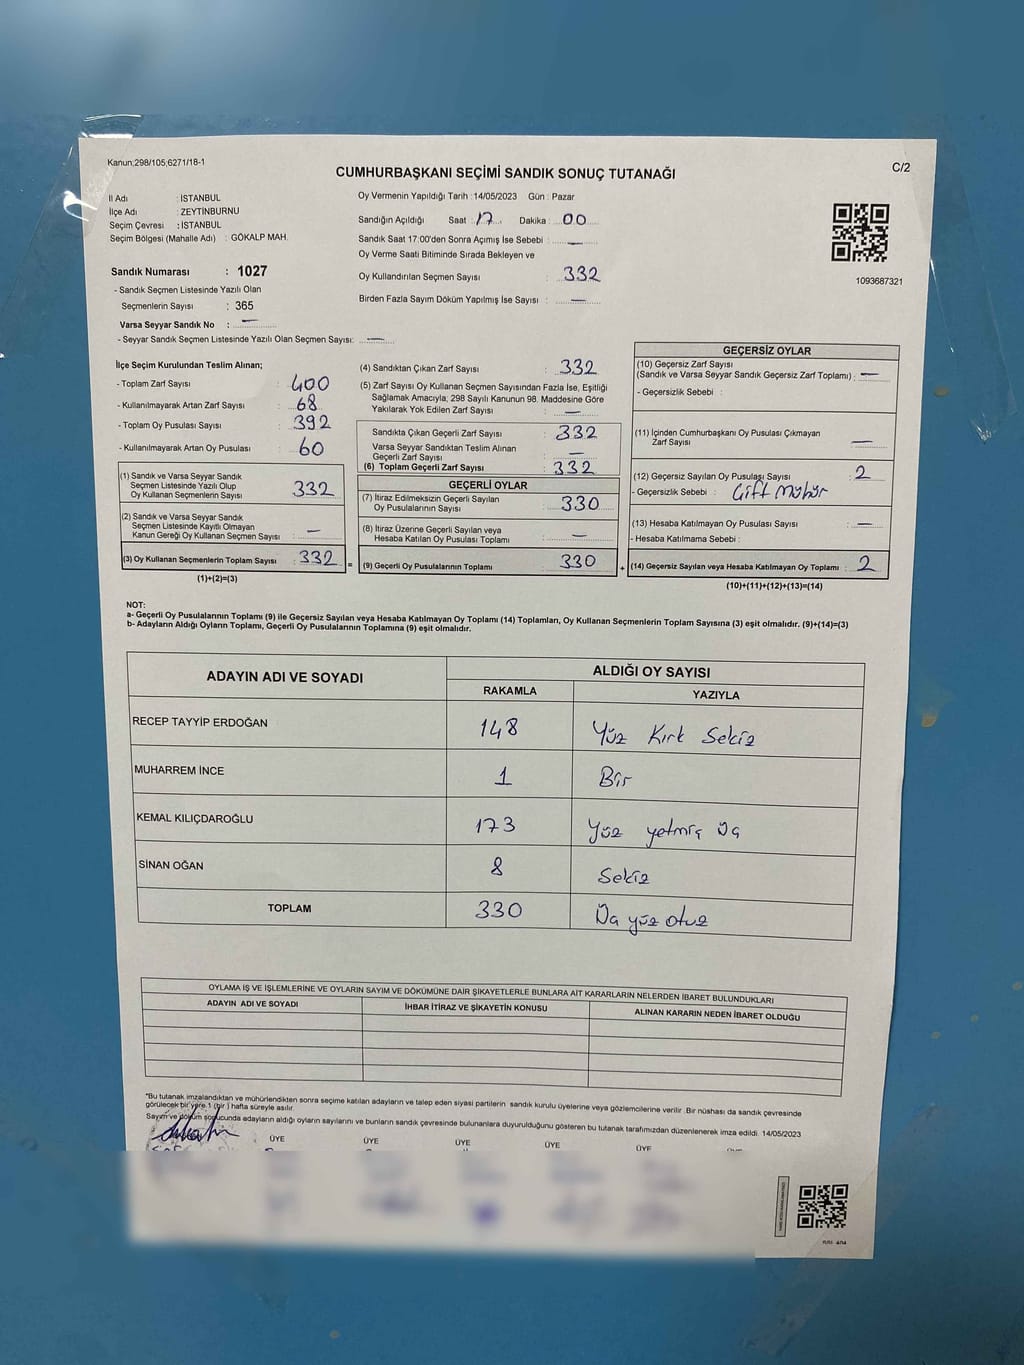 Kanun;298/105;6271/18-1
CUMHURBAŞKANI SEÇİMİ SANDIK SONUÇ TUTANAĞI
C/2
İl Adı : İSTANBUL
İlçe Adı : ZEYTİNBURNU
Seçim Çevresi : İSTANBUL
Seçim Bölgesi (Mahalle Adı) : GÖKALP MAH.
Oy Vermenin Yapıldığı Tarih : 14/05/2023 Gün : Pazar
Sandığın Açıldığı Saat : 17 Dakika : 00
Sandık Saat 17:00'den Sonra Açımış İse Sebebi : —
Oy Verme Saati Bitiminde Sırada Bekleyen ve
Oy Kullandırılan Seçmen Sayısı : 332
Birden Fazla Sayım Döküm Yapılmış İse Sayısı : —
1093687321
Sandık Numarası : 1027
- Sandık Seçmen Listesinde Yazılı Olan
Seçmenlerin Sayısı : 365
Varsa Seyyar Sandık No : —
- Seyyar Sandık Seçmen Listesinde Yazılı Olan Seçmen Sayısı: —
İlçe Seçim Kurulundan Teslim Alınan;
- Toplam Zarf Sayısı : 400
- Kullanılmayarak Artan Zarf Sayısı : 68
- Toplam Oy Pusulası Sayısı : 392
- Kullanılmayarak Artan Oy Pusulası : 60
(1) Sandık ve Varsa Seyyar Sandık
Seçmen Listesinde Yazılı Olup
Oy Kullanan Seçmenlerin Sayısı : 332
(2) Sandık ve Varsa Seyyar Sandık
Seçmen Listesinde Kayıtlı Olmayan
Kanun Gereği Oy Kullanan Seçmen Sayısı : —
(3) Oy Kullanan Seçmenlerin Toplam Sayısı : 332 =
(1)+(2)=(3)
(4) Sandıktan Çıkan Zarf Sayısı : 332
(5) Zarf Sayısı Oy Kullanan Seçmen Sayısından Fazla İse, Eşitliği
Sağlamak Amacıyla; 298 Sayılı Kanunun 98. Maddesine Göre
Yakılarak Yok Edilen Zarf Sayısı : —
Sandıkta Çıkan Geçerli Zarf Sayısı : 332
Varsa Seyyar Sandıktan Teslim Alınan
Geçerli Zarf Sayısı : —
(6) Toplam Geçerli Zarf Sayısı : 332
GEÇERLİ OYLAR
(7) İtiraz Edilmeksizin Geçerli Sayılan
Oy Pusulalarının Sayısı : 330
(8) İtiraz Üzerine Geçerli Sayılan veya
Hesaba Katılan Oy Pusulası Toplamı : —
(9) Geçerli Oy Pusulalarının Toplamı : 330 +
GEÇERSİZ OYLAR
(10) Geçersiz Zarf Sayısı
(Sandık ve Varsa Seyyar Sandık Geçersiz Zarf Toplamı) : —
- Geçersizlik Sebebi :
(11) İçinden Cumhurbaşkanı Oy Pusulası Çıkmayan
Zarf Sayısı : —
(12) Geçersiz Sayılan Oy Pusulası Sayısı : 2
- Geçersizlik Sebebi : Çift Mühür
(13) Hesaba Katılmayan Oy Pusulası Sayısı : —
- Hesaba Katılmama Sebebi :
(14) Geçersiz Sayılan veya Hesaba Katılmayan Oy Toplamı : 2
(10)+(11)+(12)+(13)=(14)
NOT:
a- Geçerli Oy Pusulalarının Toplamı (9) ile Geçersiz Sayılan veya Hesaba Katılmayan Oy Toplamı (14) Toplamları, Oy Kullanan Seçmenlerin Toplam Sayısına (3) eşit olmalıdır. (9)+(14)=(3)
b- Adayların Aldığı Oyların Toplamı, Geçerli Oy Pusulalarının Toplamına (9) eşit olmalıdır.
ADAYIN ADI VE SOYADI ALDIĞI OY SAYISI
RAKAMLA YAZIYLA
RECEP TAYYİP ERDOĞAN 148 Yüz Kırk Sekiz
MUHARREM İNCE 1 Bir
KEMAL KILIÇDAROĞLU 173 Yüz yetmiş üç
SİNAN OĞAN 8 Sekiz
TOPLAM 330 Üç yüz otuz
OYLAMA İŞ VE İŞLEMLERİNE VE OYLARIN SAYIM VE DÖKÜMÜNE DAİR ŞİKAYETLERLE BUNLARA AİT KARARLARIN NELERDEN İBARET BULUNDUKLARI
ADAYIN ADI VE SOYADI İHBAR İTİRAZ VE ŞİKAYETİN KONUSU ALINAN KARARIN NEDEN İBARET OLDUĞU
"Bu tutanak imzalandıktan ve mühürlendikten sonra seçime katılan adayların ve talep eden siyasi partilerin sandık kurulu üyelerine veya gözlemcilerine verilir .Bir nüshası da sandık çevresinde
görülecek bir yere 1 (bir ) hafta süreyle asılır.
Sayım ve döküm sonucunda adayların aldığı oyların sayılarını ve bunların sandık çevresinde bulunanlara duyurulduğunu gösteren bu tutanak tarafımızdan düzenlenerek imza edildi. 14/05/2023
ÜYE ÜYE ÜYE ÜYE ÜYE